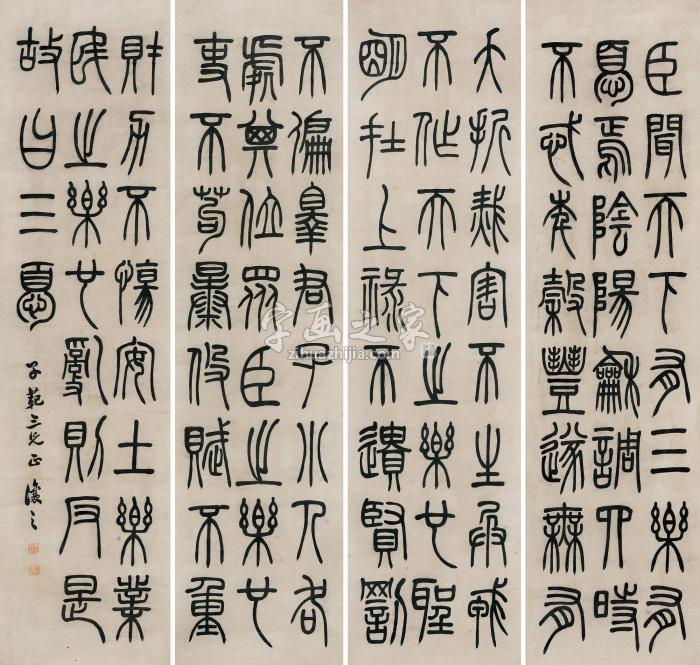 臣聞天下有三樂有
憂焉陰陽龢調四時
不忒年穀豐遂無有
夭折烖害不生兵戎
不作天下之樂也聖
明在上祿不遺賢罰
不偏辠君子小人各
處其位眾臣之樂也
吏不苟暴役賦不重
財力不傷安土樂業
民之樂也亂則反是
故曰三憂
子範三兄正
字画之家
zihuazhijia.com